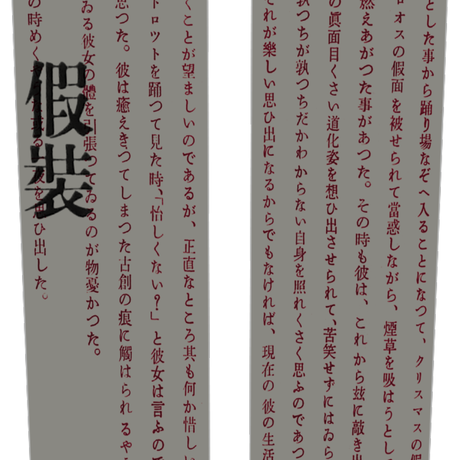 とした事から踊り場なぞへ入ることになつて、クリスマスの假
ロオスの假面を被せられて當惑しながら、煙草を吸はうとし
燃えあがつた事があつた。その時も彼は、これから玆に敲き出
の眞面目くさい道化姿を想ひ出させられて、苦笑せずにはゐら
孰つちが孰つちだかわからない自身を照れくさく思ふのであつ
それが樂しい思ひ出になるからでもなければ、現在の彼の生活
くことが望ましいのであるが、正直なところ其も何か惜しい
トロツトを踊つて見た時、「怡しくない?」と彼女は言ふので
思つた。彼は癒えきつてしまつた古創の痕に觸はられるやう
ゐる彼女の體を引張つてゐるのが物憂かつた。
の時めく
ひ出した。
假裝